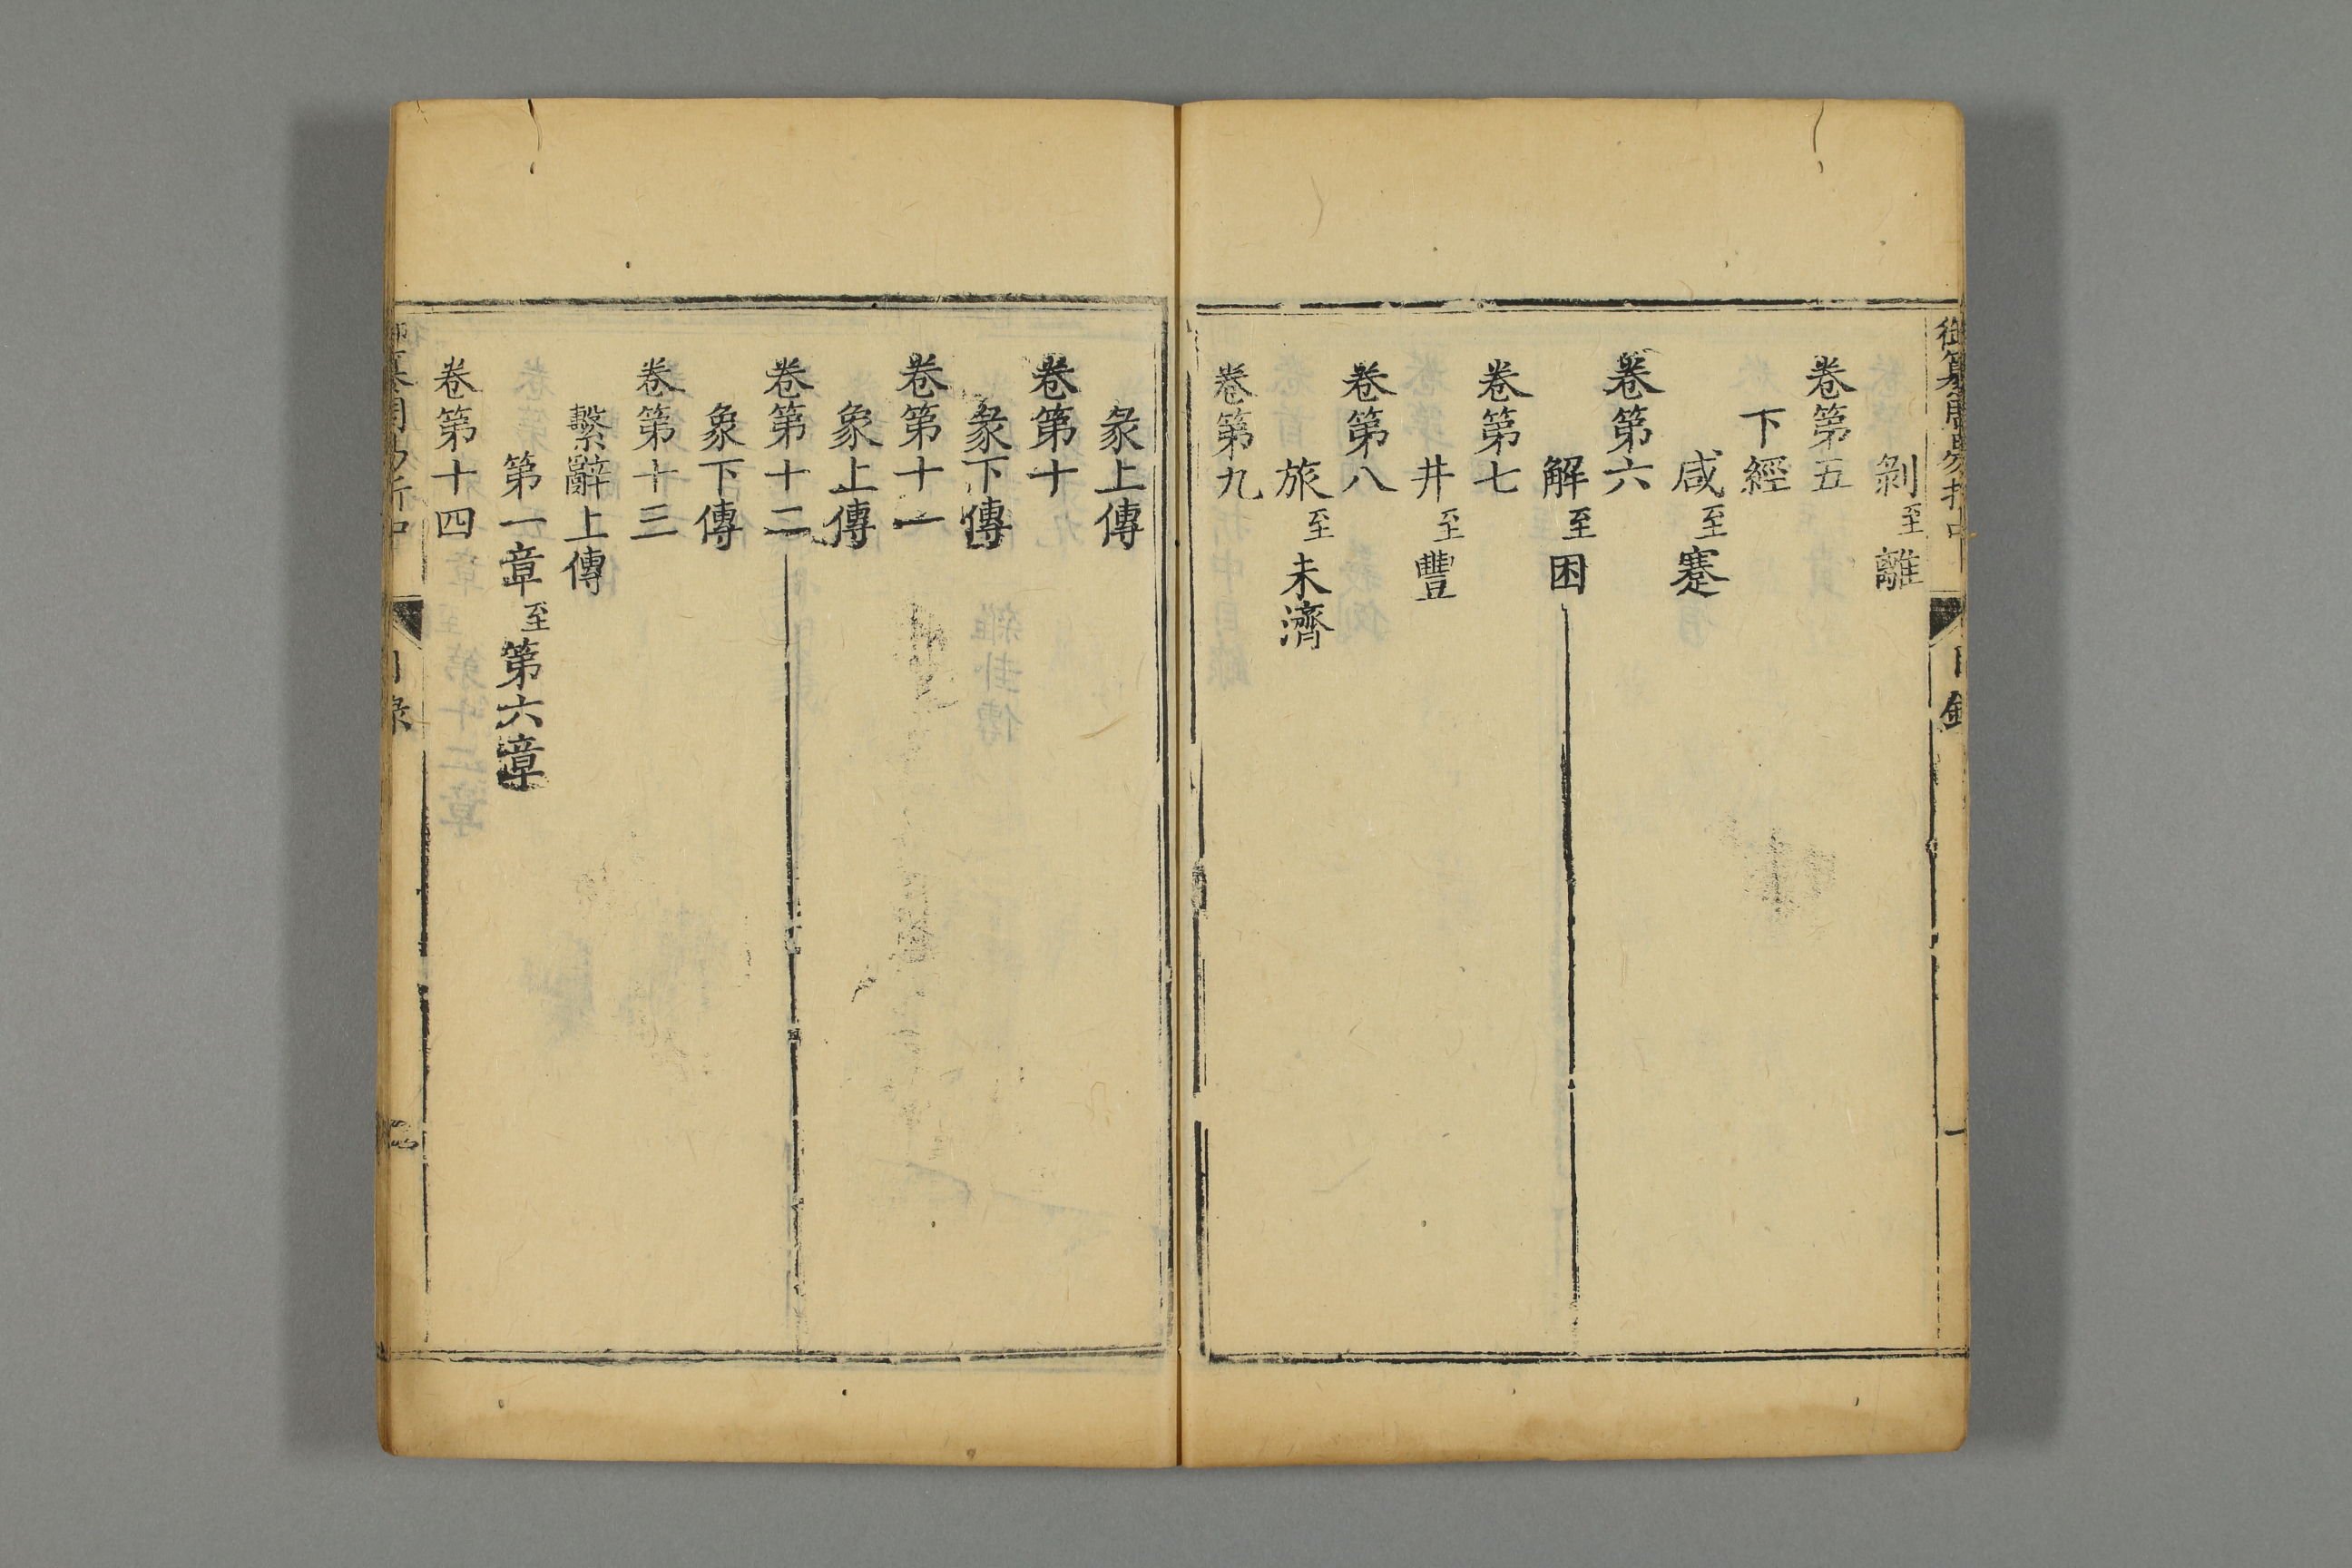 剝至離
卷第五
下經
咸至蹇
卷第六
解至困
卷第七
井至豐
卷第八
旅至未濟
卷第九
彖上傳
卷第十
彖下傳
卷第十一
象上傳
卷第十二
象下傳
卷第十三
繫辭上傳
第一章至第六章
卷第十四